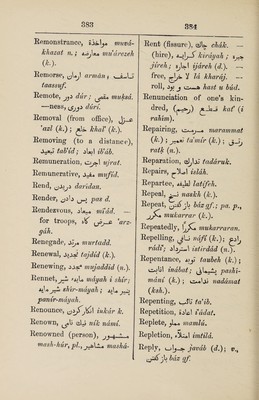 383
Remonstrance, مؤاخذة muvá-
khazat n.; معارضه mu'áraza
(k.).
Remorse, ارمان armán; تأسف
taassuf.
Remote, دور dúr; مقصى muḳsá.
—ness, دورى dúrí.
Removal (from office), عزل
'azl (k.); خلع khal' (k.).
Removing (to a distance),
تبعيد tab'íd; ابعاد ib'ád.
Remuneration, اجرت ujrat.
Remunerative, مفيد mufíd.
Rend, دريدن darídan.
Render, پس دادن pas d.
Rendezvous, ميعاد mí'ád. —
for troops, عرضگاه 'arz-
gáh.
Renegade, مرتد murtadd.
Renewal, تجديد tajdíd (k.).
Renewing, مجدد mujaddid (n.).
Rennet, مايۀ شير máyah i shír;
شير مايه shír-máyah; پنير مايه
panír-máyah.
Renounce, انكار كردن inkár k.
Renown, نيك نامى nik námí.
Renowned (person), مشهور
mash-húr, pl., مشاهير mashá-
384
Rent (fissure), چاك chák. —
(hire), كرايه kiráyah; جيره
jíreh; اجاره ijáreh (d.). —
free, لا خراج lá kharáj. —
roll, هست و بود hast u búd.
Renunciation of one's kin-
dred, قطع (رحم) ḳat' (i
rahim).
Repairing, مرمت marammat
(k.); تعمير ta'mír (k.); رتق
ratḳ (n.).
Reparation, تدارك tadáruk.
Repairs, اصلاح isláh.
Repartee, لطيفه latífeh.
Repeal, نسخ naskh (k.).
Repeat, باز گفتن báz gf.; pa. p.,
مكرر mukarrar (k.).
Repeatedly, مكررا mukarraran.
Repelling, نافى náfí (k.); رادع
rádi'; استرداد istirdád (n.).
Repentance, توبه taubeh (k.);
انابت inábat; پشيمانى pashí-
mání (k.); ندامت nadámat
(ksh.).
Repenting, تائب tá'ib.
Repetition, اعادت i'ádat.
Replete, مملو mamlú.
Repletion, امتلا imtilá.
Reply, جواب javáb (d.); v.,
باز گفتن báz gf.